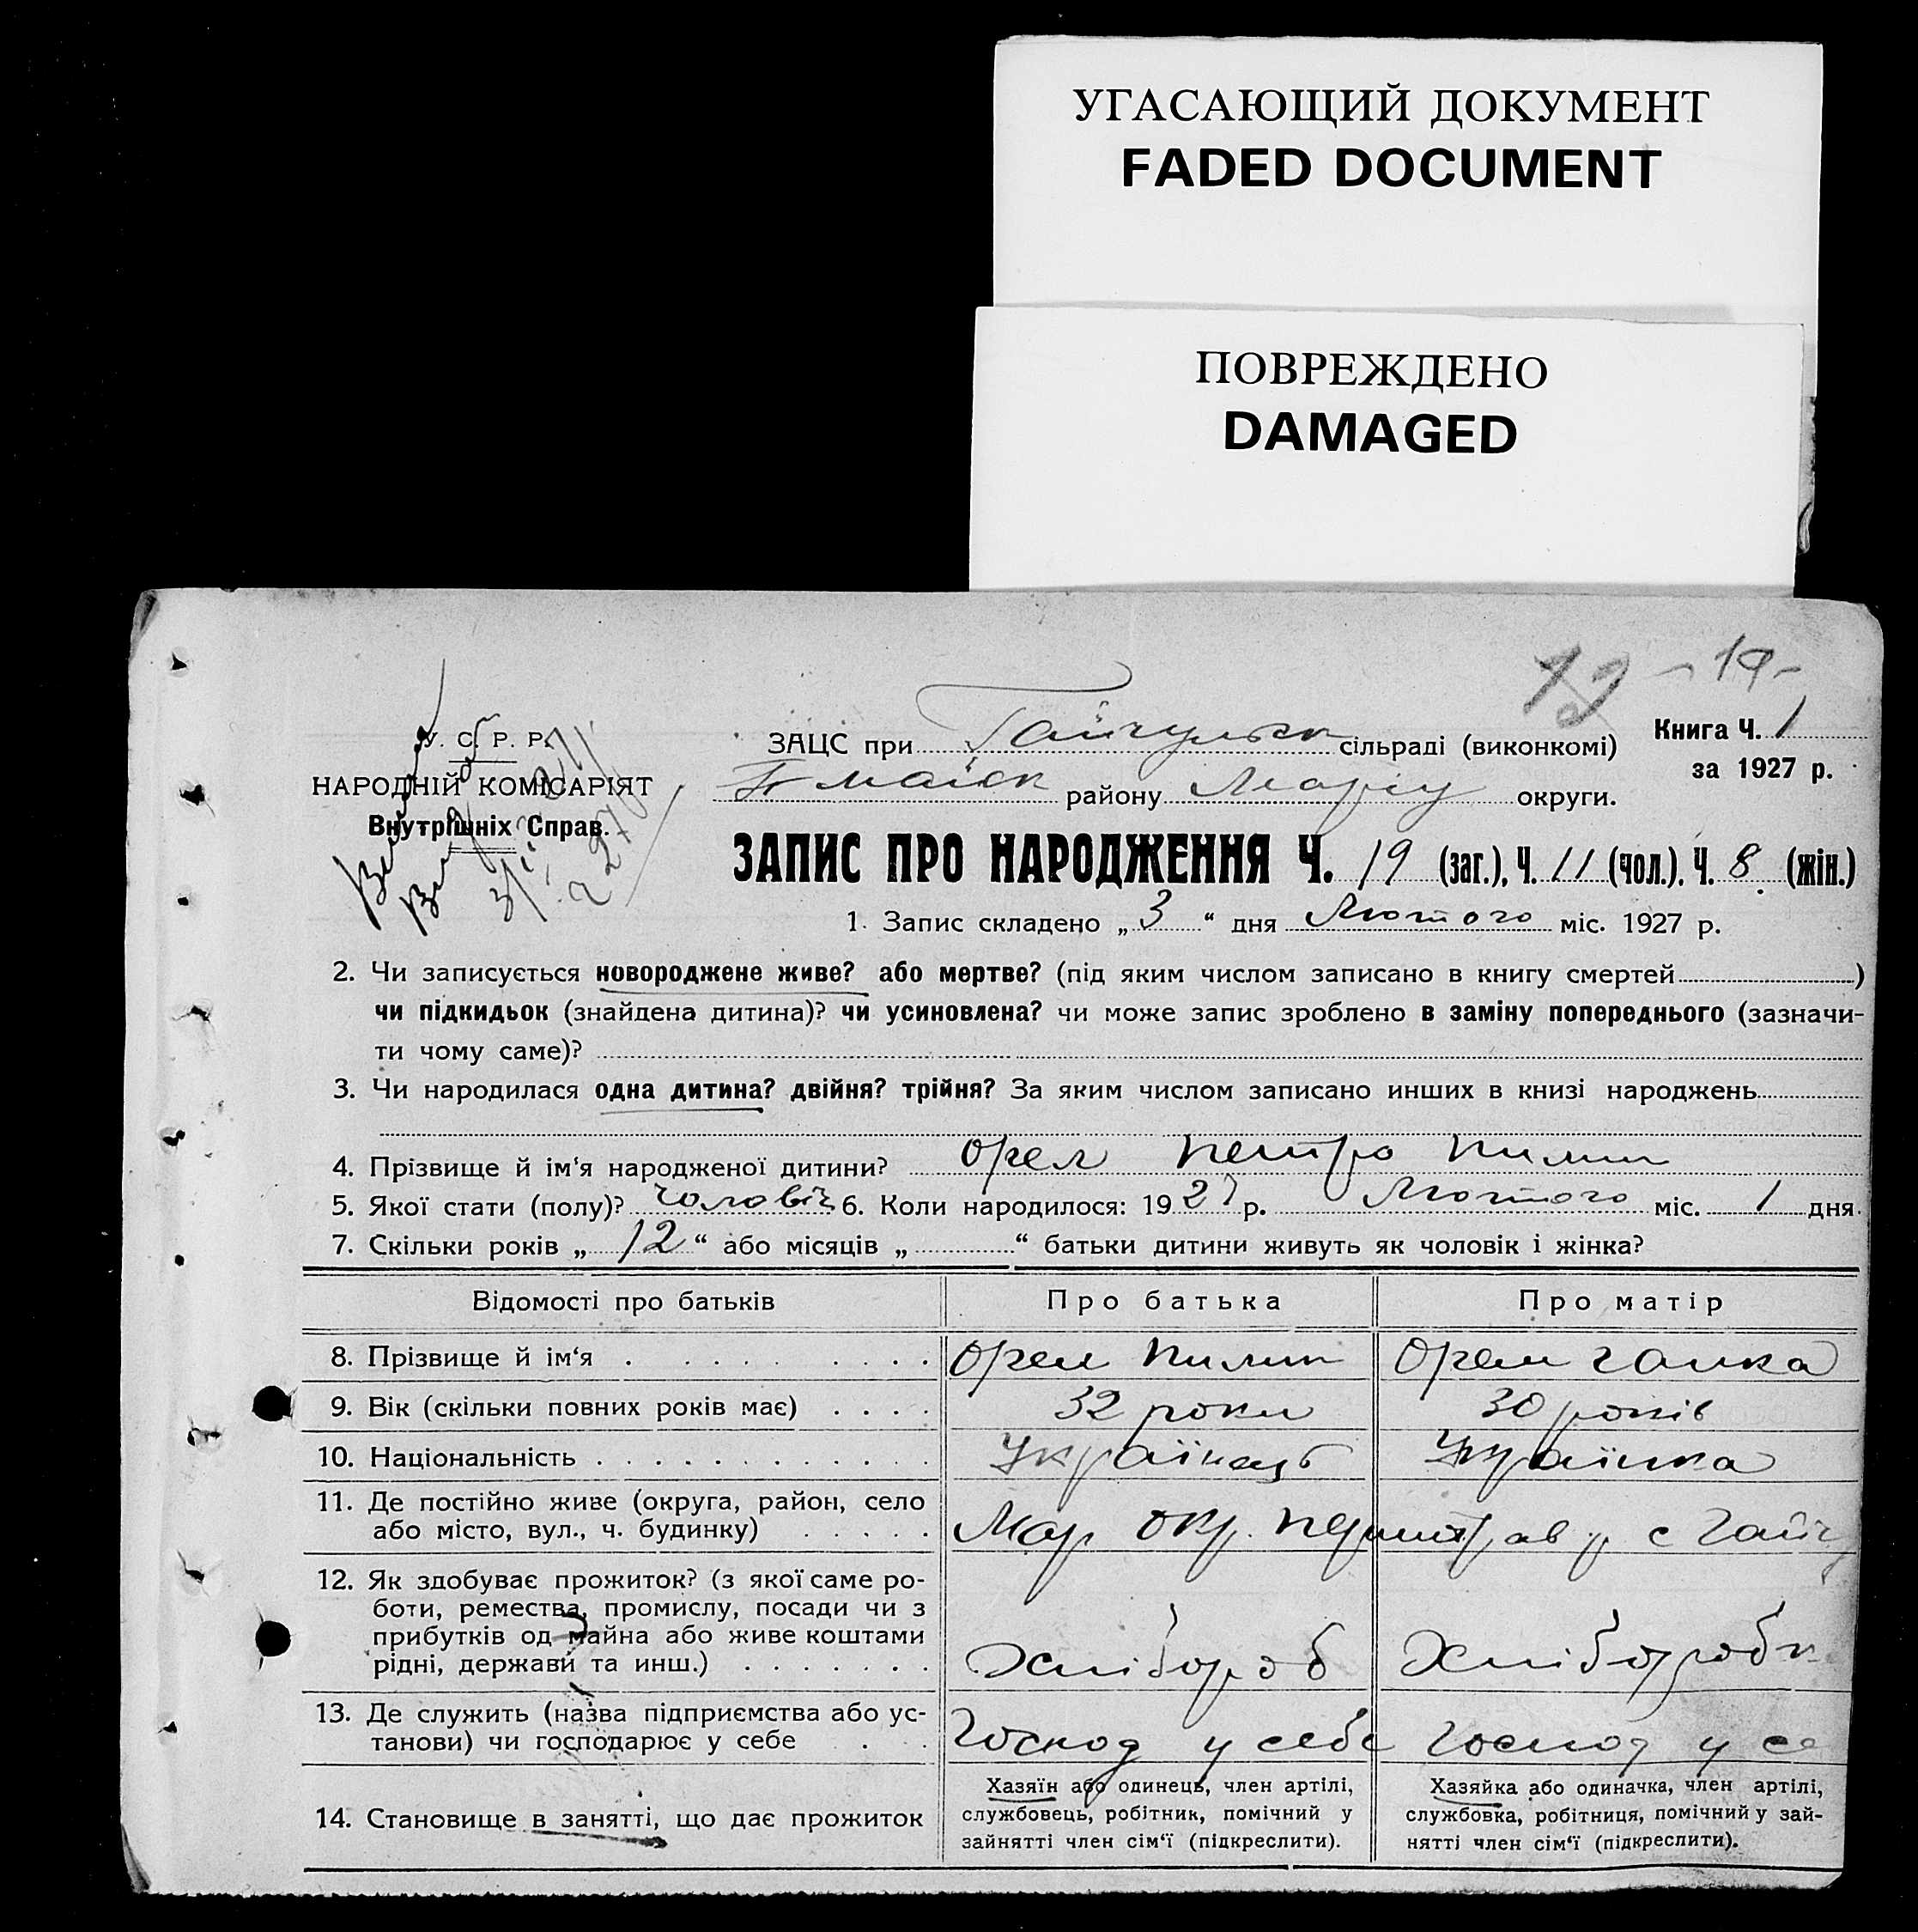 УГАСАЮЩИЙ ДОКУМЕНТ
FADED DOCUMENT
ПОВРЕЖДЕНО
DAMAGED
- 19 -
У. С. Р. Р.
НАРОДНІЙ КОМІСАРІЯТ
Внутрішніх Справ.
ЗАЦС при Гайчульск сільраді (виконкомі)
Книга Ч. 1
за 1927 р.
майск району Маріу округи.
ЗАПИС ПРО НАРОДЖЕННЯ Ч. 19 (заг.), Ч. 11 (чол.), Ч. 8 (жін.)
1. Запис складено „ 3 “ дня Лютого міс. 1927 р.
2. Чи записується новороджене живе? або мертве? (під яким числом записано в книгу смертей )
чи підкидьок (знайдена дитина)? чи усиновлена? чи може запис зроблено в заміну попереднього (зазначи-
ти чому саме)?
3. Чи народилася одна дитина? двійня? трійня? За яким числом записано инших в книзі народжень
4. Прізвище й ім‘я народженої дитини? Орел Петро Пилип
5. Якої стати (полу)? чоловіч 6. Коли народилося: 19 27 р. Лютого міс. 1 дня.
7. Скільки років „ 12 “ або місяців „ “ батьки дитини живуть як чоловік і жінка?
Відомості про батьків Про батька Про матір
8. Прізвище й ім‘я Орел Пилип Орел Ганка
9. Вік (скільки повних років має) 32 роки 30 років
10. Національність Українець Українка
11. Де постійно живе (округа, район, село
або місто, вул., ч. будинку) Мар окр. р с Гайч
12. Як здобуває прожиток? (з якої саме ро-
боти, ремества, промислу, посади чи з
прибутків од майна або живе коштами
рідні, держави та инш.) Хлібороб Хліборобк
13. Де служить (назва підприємства або ус-
танови) чи господарює у себе Господ у себе Господ у се
14. Становище в занятті, що дає прожиток
Хазяїн або одинець, член артілі,
службовець, робітник, помічний у
зайнятті член сім‘ї (підкреслити).
Хазяйка або одиначка, член артілі,
службовка, робітниця, помічний у зай-
нятті член сім‘ї (підкреслити).